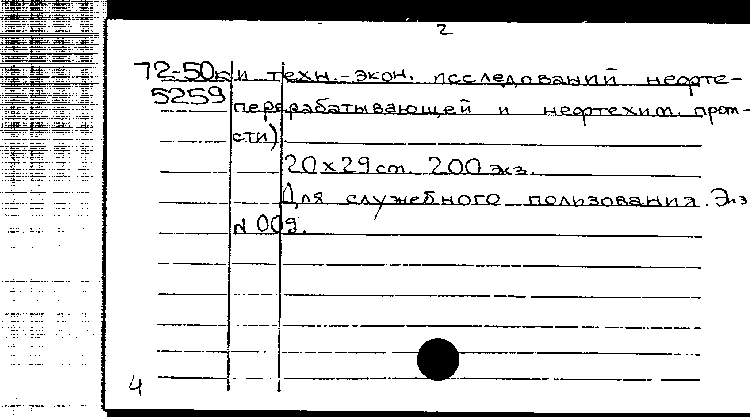 2
72-50к и техн.-экон. исследований нефте-
5259 перерабатывающей и нефтехим. пром-
сти)
20х29 см. 200 экз.
Для служебного пользования. Экз
N 009.
4